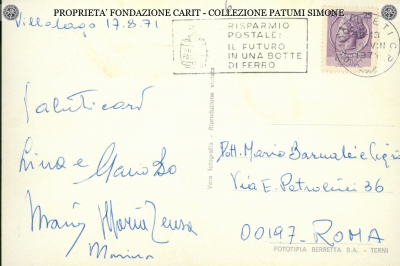 PROPRIETA' FONDAZIONE CARIT - COLLEZIONE PATUMI SIMONE
Villalago 17.8.71
RISPARMIO
POSTALE:
IL FUTURO
IN UNA BOTTE
DI FERRO
Saluti cari
Lina e
Maria Teresa
Marina
Vera fotografia - Riproduzione vietata
Dott. Mario Barnabei e
Via E. Petrolini 36
00197 - ROMA
FOTOTIPIA BERRETTA S.A. - TERNI